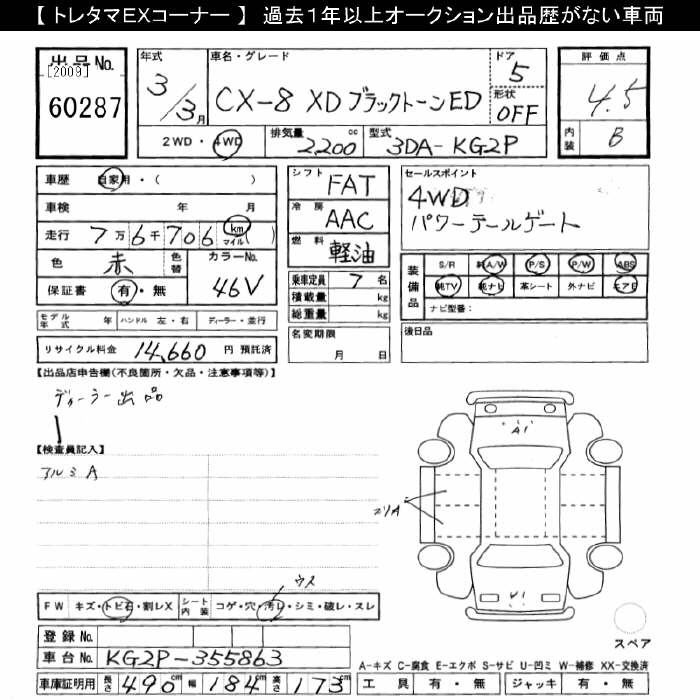 【 トレタマEXコーナー 】 過去1年以上オークション出品歴がない車両
出品No.
[2009]
60287
年式
3/3月
車名・グレード
CX-8 XDブラックトーンED
ドア
5
形状
OFF
評価点
4.5
内装
B
2WD・4WD
排気量
2,200 cc
型式
3DA-KG2P
車歴 自家用・( )
車検 年 月
走行 7万6千706 km マイル( )
色 赤 色替
カラーNo.
46V
保証書 有・無
モデル年式 年 ハンドル 左・右 ディーラー・並行
リサイクル料金 14,660 円 預託済
シフト FAT
冷房 AAC
燃料 軽油
乗車定員 7 名
積載量 kg
総重量 kg
名変期限
月 日
セールスポイント
4WD
パワーテールゲート
装備品
S/R 純A/W P/S P/W ABS
純TV 純ナビ 革シート 外ナビ エアB
ナビ型番:
後日品
【出品店申告欄(不良箇所・欠品・注意事項等)】
ディーラー出品
【検査員記入】
アルミA
A1
コリA
ウス
FW キズ・トビ石・割レX
シート内装 コゲ・穴・汚レ・シミ・破レ・スレ
登録No.
車台No. KG2P-355863
車庫証明用 長さ 490cm 幅 184cm 高さ 173cm
スペア
A-キズ C-腐食 E-エクボ S-サビ U-凹ミ W-補修 XX-交換済
工具 有・無 ジャッキ 有・無